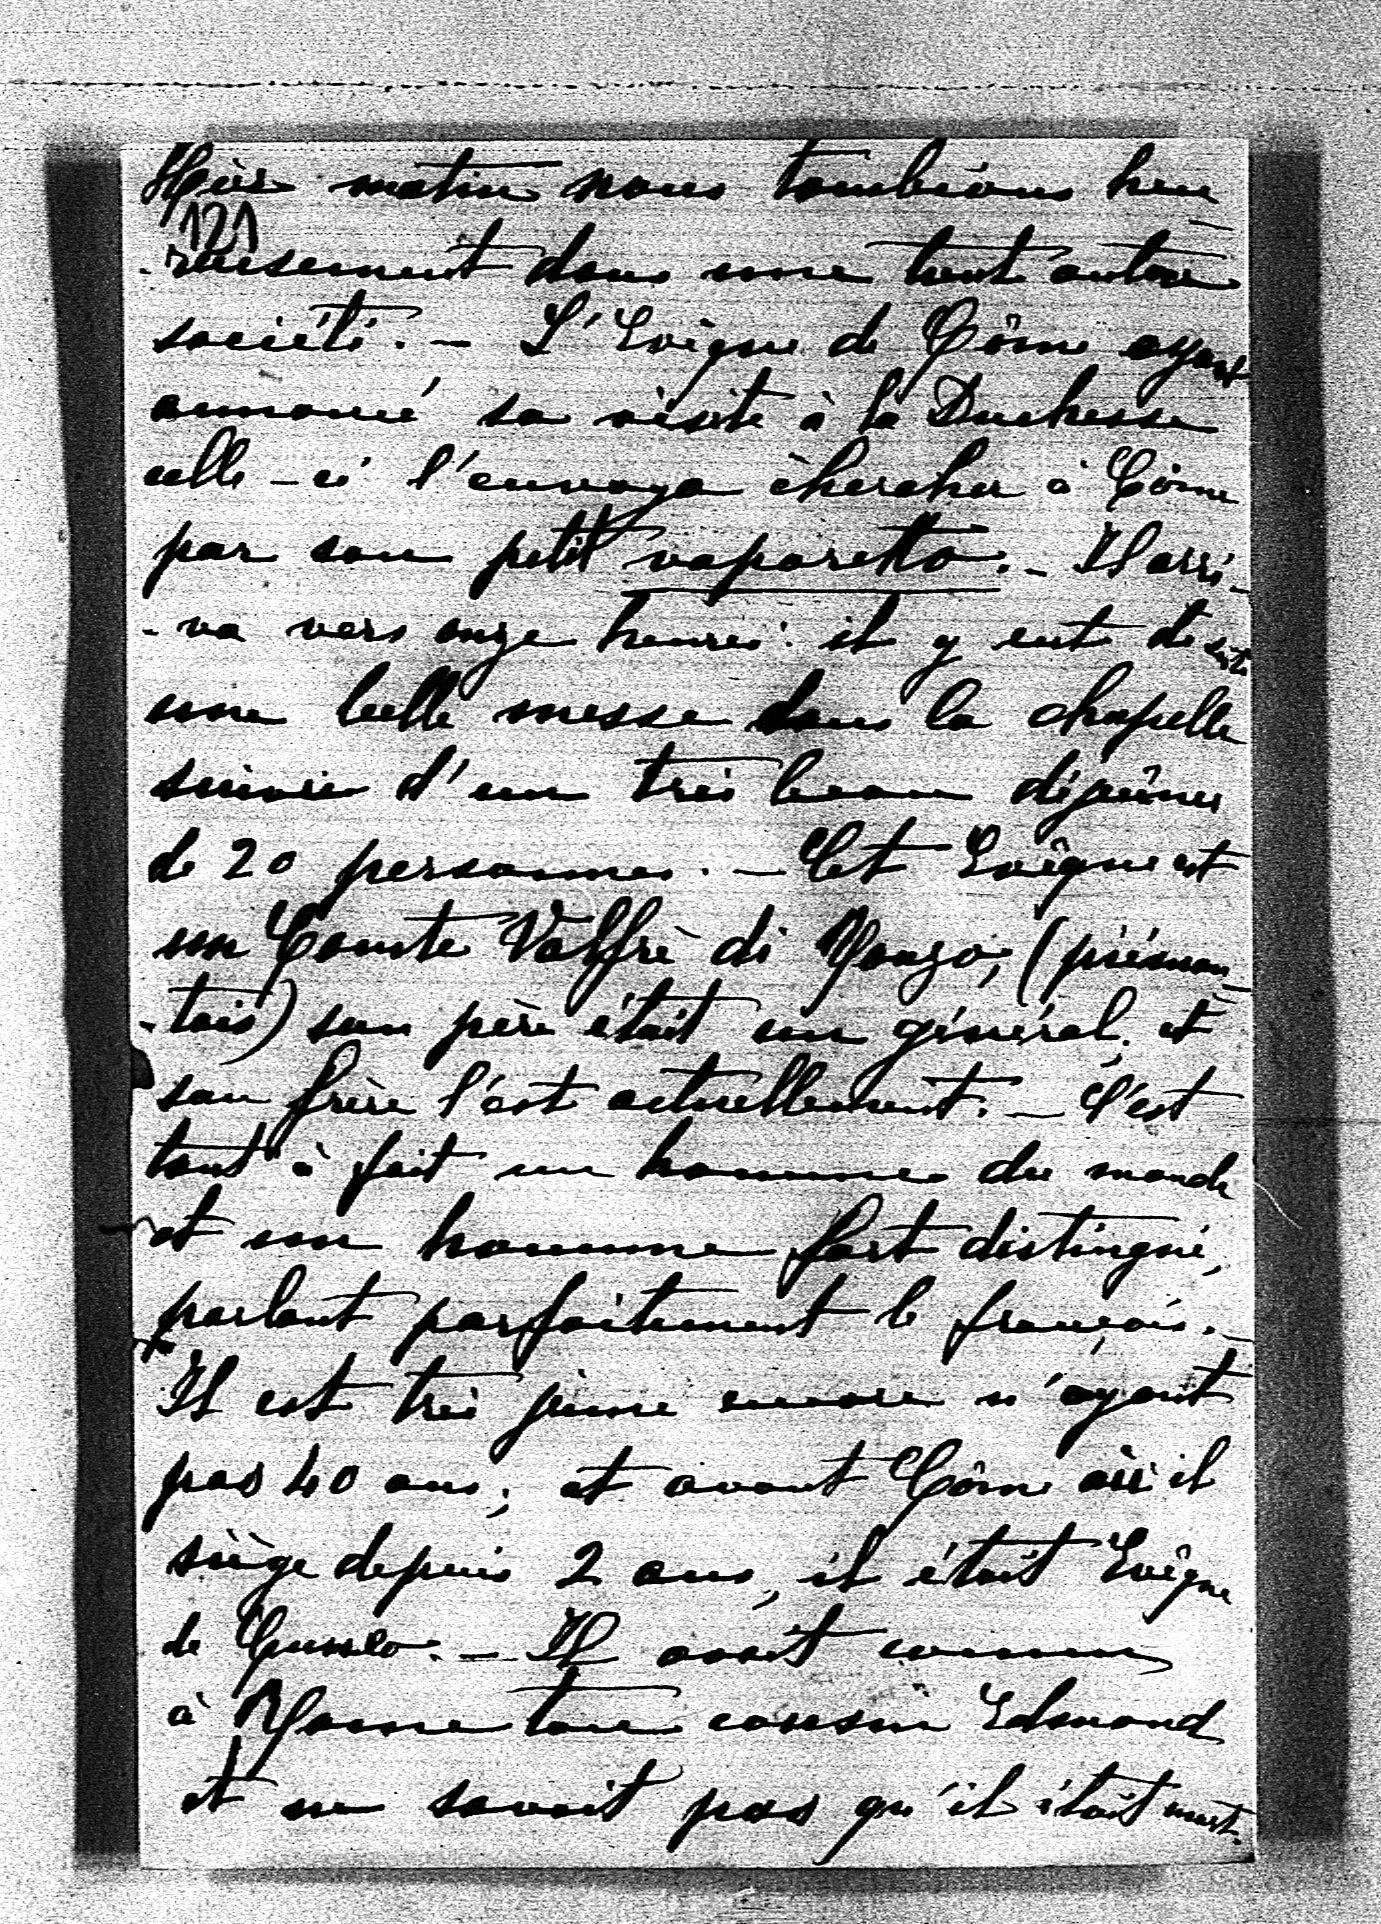 Hier matin nous tombions heu
121
-reusement dans une tout autre
société. — L'Evêque de Côme ayant
annoncé sa visite à la Duchesse
celle-ci l'envoya chercher à Côme
par son petit vaporetto. — Il arri-
-va vers onze heures: il y eut de suite
une belle messe dans la chapelle
suivie d'un très beau déjeûner
de 20 personnes. — Cet Evêque est
un Comte Valfrè di Bonzo, (piémon
-tais) son père était un général, et
son frère l'est actuellement. — C'est
tout à fait un homme du monde
et un homme fort distingué,
parlant parfaitement le français. —
Il est très jeune encore n'ayant
pas 40 ans; et avant Côme où il
siège depuis 2 ans, il était Evêque
de Cuneo. — Il avait connu
à Rome ton cousin Edmond
et ne savait pas qu'il était mort.